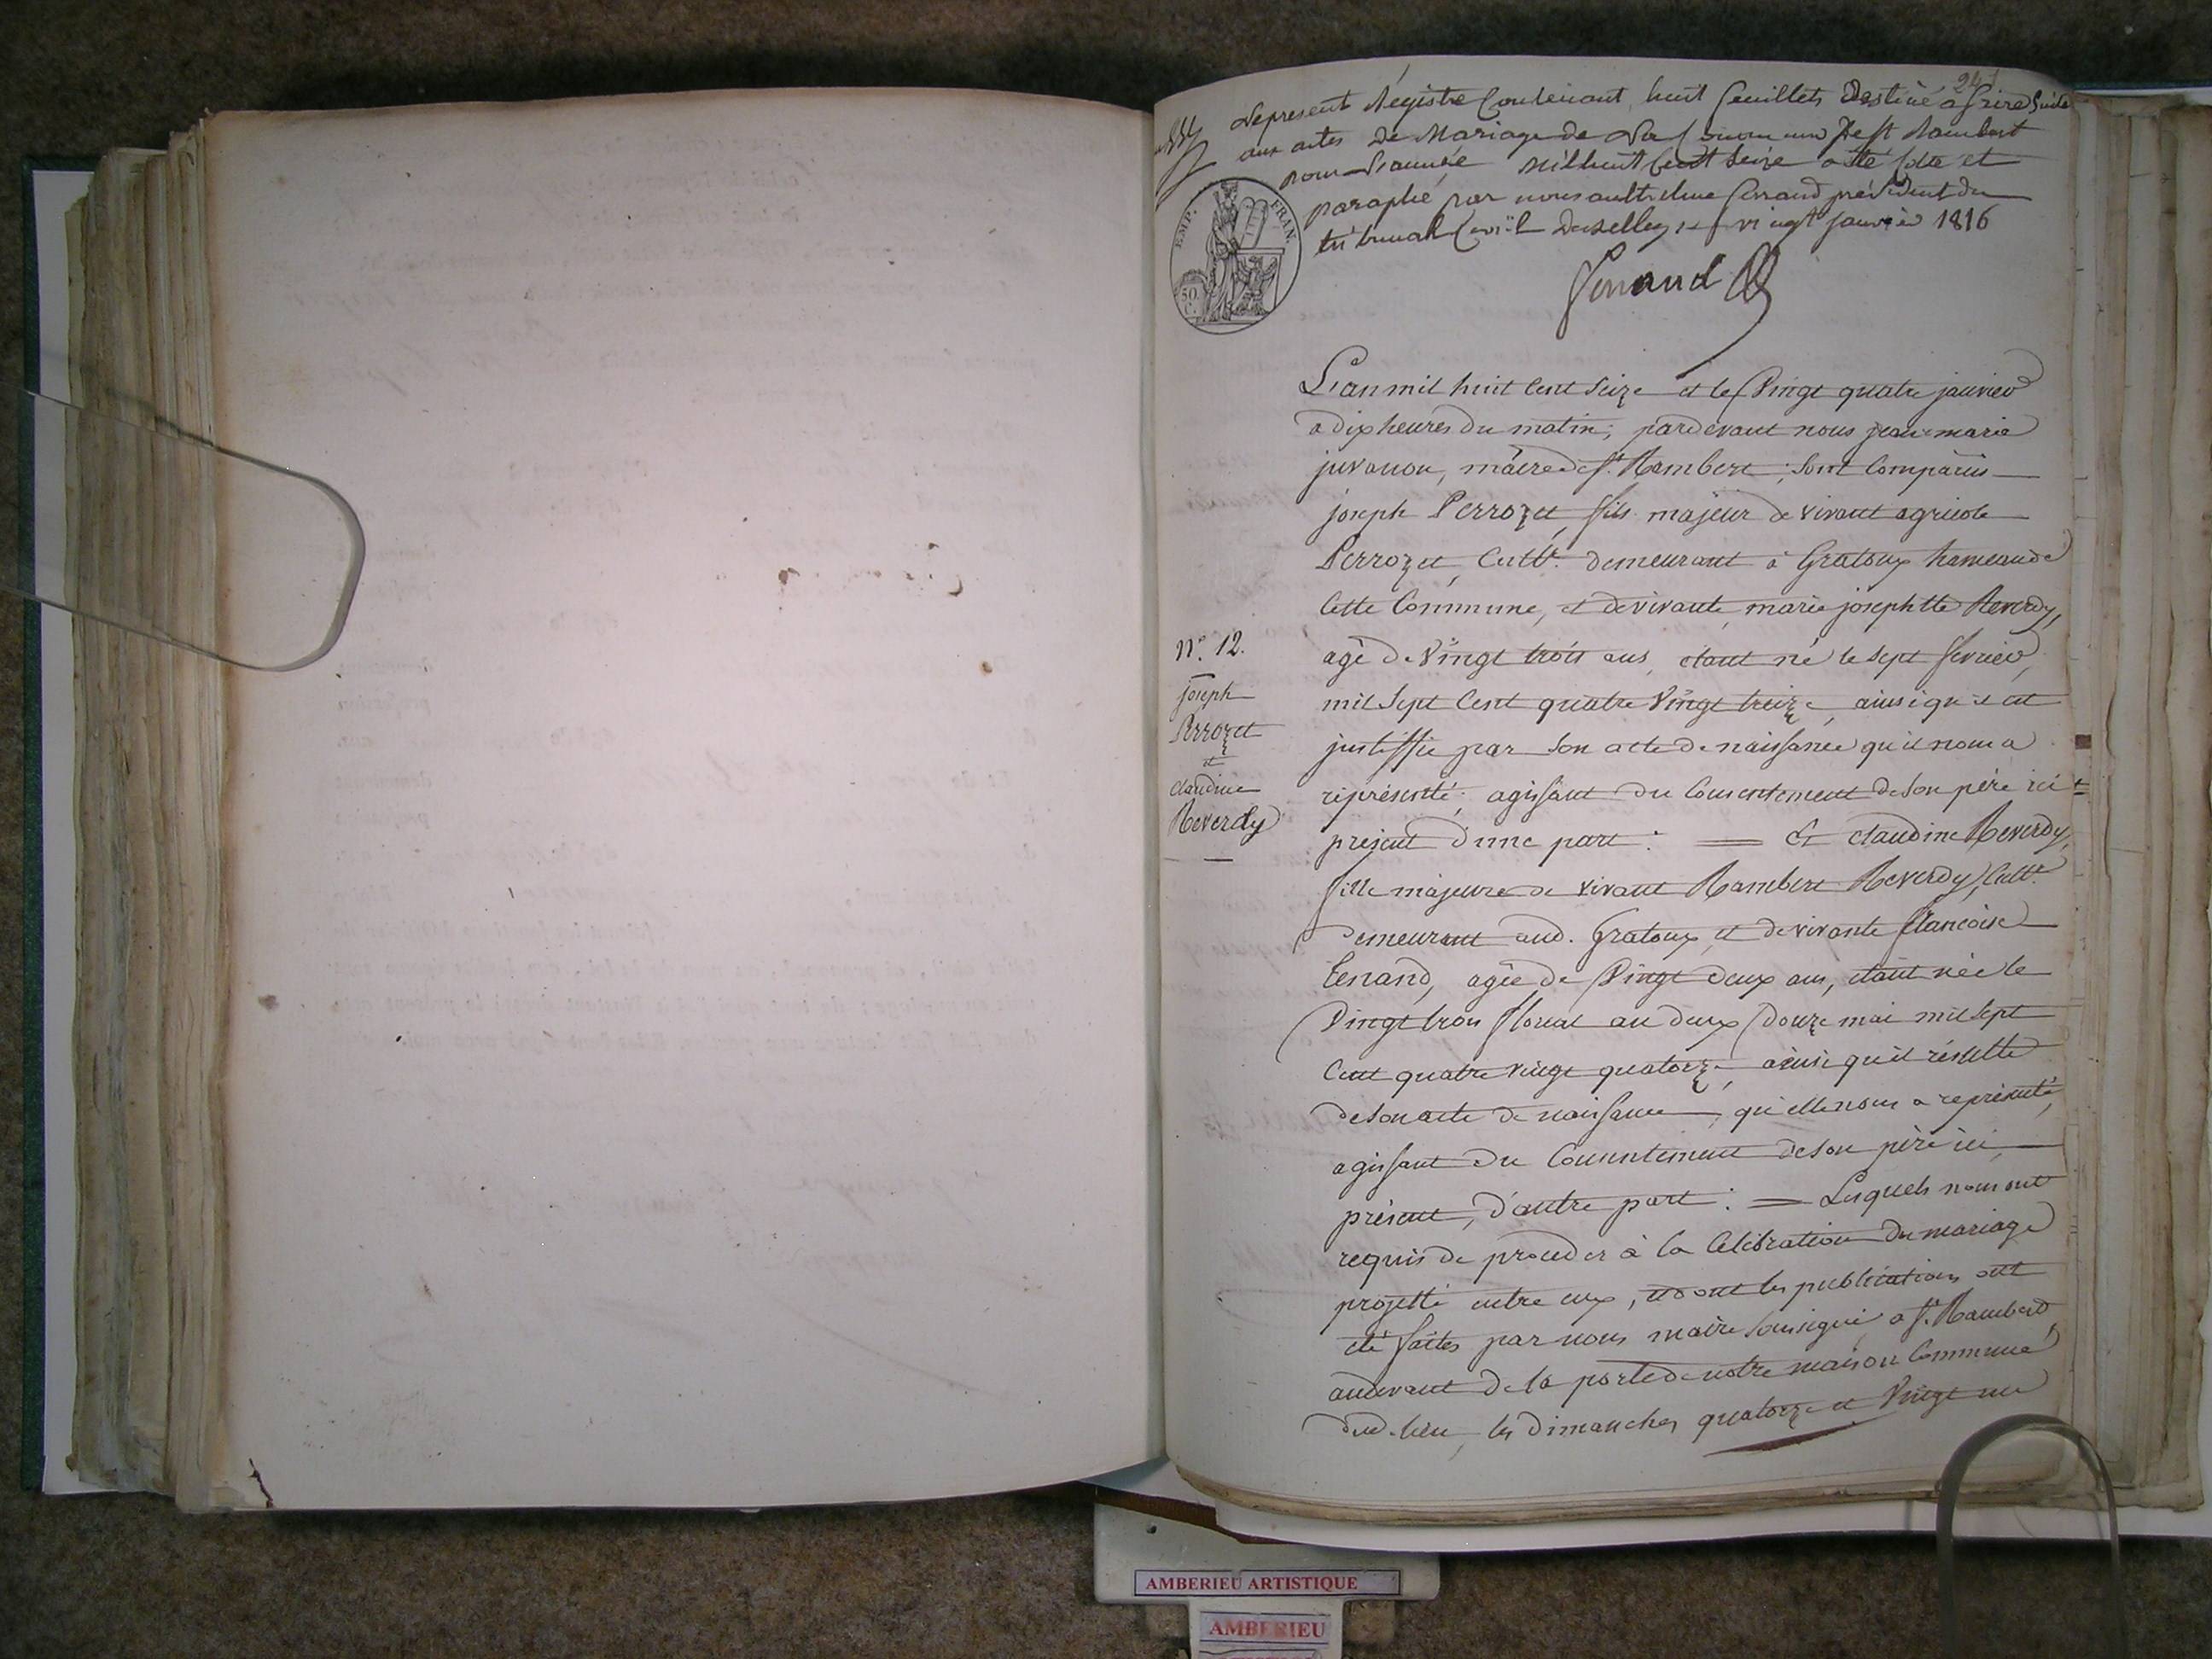 241
Le present Régistre Contenant huit feuillets Destiné a faire Suite
aux actes De Mariage de La Commune De St Rambert
pour L'année Mil huit Cent Seize a été Coté et
paraphé par nous anthelme ferrand président du
tribunal Civil De Belley le vingt janvier 1816
EMP. FRAN.
50 C.
ferrand
L'an mil huit Cent Seize et le Vingt quatre janvier
a dix heures du matin, pardevant nous jean marie
juvanon, maire de St. Rambert; Sont Comparus
joseph Perrozet, fils majeur de vivant agricole
Perrozet, Cultr. demeurant à Gratoux hameau de
Cette Commune, et de vivante marie josephtte Reverdy,
agé de Vingt trois ans, étant né le sept fevrier,
mil Sept Cent quatre Vingt treize, ainsi qu'il est
justiffié par Son acte de naissance qu'il nous a
réprésenté; agissant du Consentement de Son père ici
présent d'une part: = Et claudine Reverdy,
fille majeure de vivant Rambert Reverdy, Cultr.
demeurant aud. Gratoux, et de vivante francoise
Tenand, agée de Vingt deux ans, étant née le
Vingt trois floreal an deux (douze mai mil Sept
Cent quatre vingt quatorze, ainsi qu'il résulte
de Son acte de naissance, qu'elle nous a représenté,
agissant du Consentement de Son père ici
présent, d'autre part: = Lesquels nous ont
requis de procéder à la Célébration du mariage
projetté entre eux, et dont les publications ont
été faites par nous maire Soussigné a St. Rambert,
audevant de la porte de notre maison Commune
dud. lieu, les dimanches quatorze et Vingt un
N.° 12.
joseph
Perrozet
et
claudine
Reverdy
AMBERIEU ARTISTIQUE
AMBERIEU